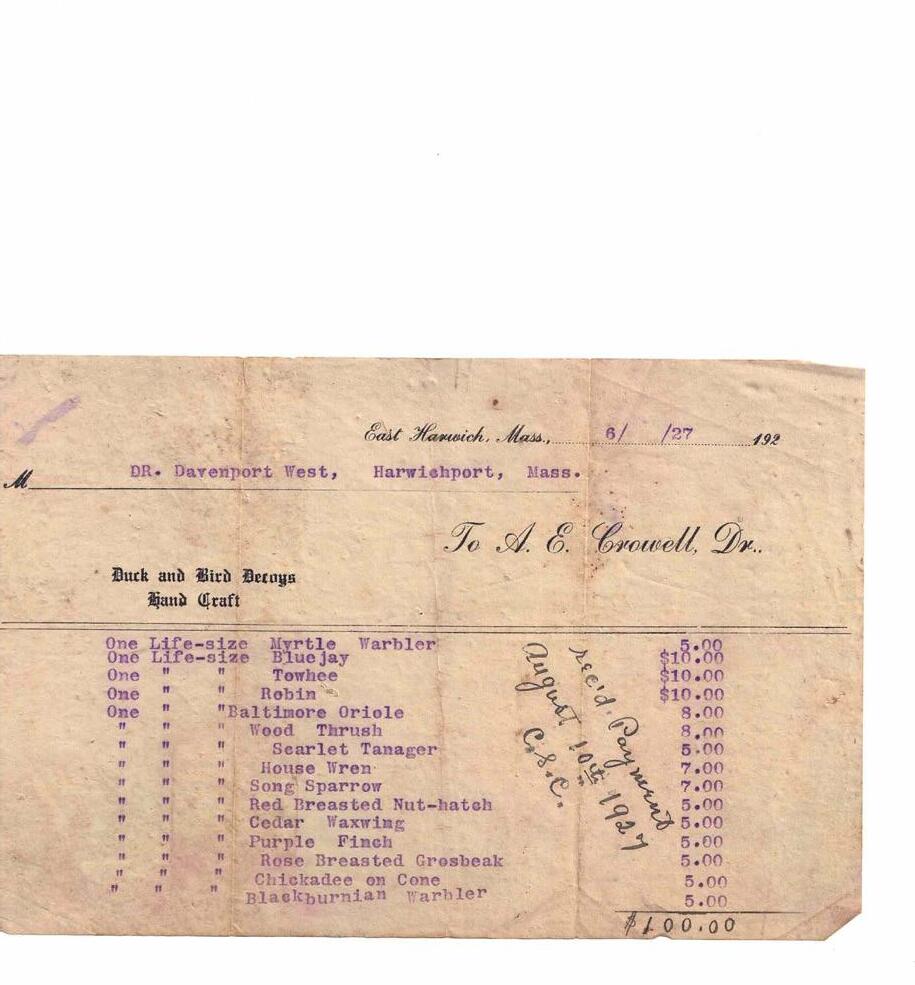 East Harwich, Mass., 6/ /27 192
M DR. Davenport West, Harwichport, Mass.
To A. E. Crowell, Dr..
Duck and Bird Decoys
Hand Craft
One Life-size Myrtle Warbler 5.00
One Life-size Bluejay $10.00
One " " Towhee $10.00
One " " Robin $10.00
One " " Baltimore Oriole 8.00
" " " Wood Thrush 8.00
" " " Scarlet Tanager 5.00
" " " House Wren 7.00
" " " Song Sparrow 7.00
" " " Red Breasted Nut-hatch 5.00
" " " Cedar Waxwing 5.00
" " " Purple Finch 5.00
" " " Rose Breasted Grosbeak 5.00
" " " Chickadee on Cone 5.00
" " " Blackburnian Warbler 5.00
$100.00
rec'd. Payment
August 10th 1927
C.S.C.